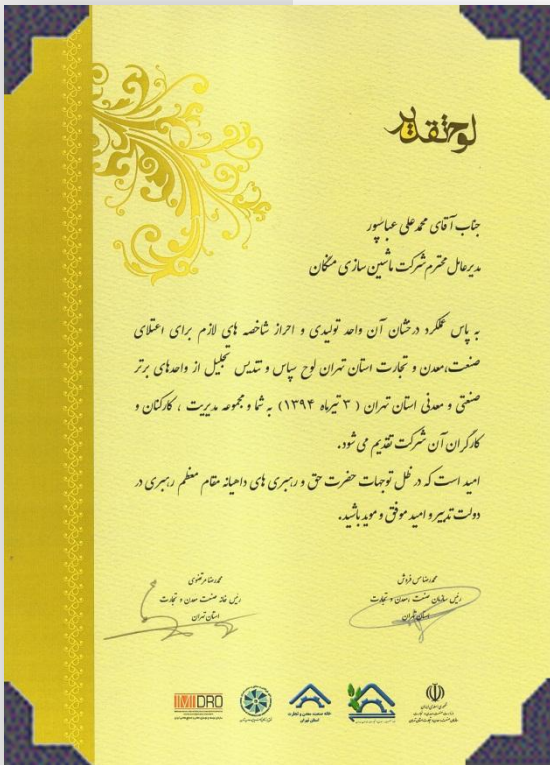 لوح تقدیر
جناب آقای محمدعلی عباسپور
مدیرعامل محترم شرکت ماشین سازی مگان
به پاس عملکرد درخشان آن واحد تولیدی و احراز شاخصه های لازم برای اعتلای
صنعت،معدن و تجارت استان تهران لوح سپاس و تندیس تجلیل از واحدهای برتر
صنعتی و معدنی استان تهران ( ۳ تیرماه ۱۳۹۴) به شما و مجموعه مدیریت ، کارکنان و
کارگران آن شرکت تقدیم می شود.
امید است که در ظل توجهات حضرت حق و رهبری های داهیانه مقام معظم رهبری در
دولت تدبیر و امید موفق و موید باشید.
محمدرضا مس فروش
رئیس سازمان صنعت ،معدن و تجارت
استان تهران
محمدرضا مرتضوی
رئیس خانه صنعت معدن و تجارت
استان تهران
IMIDRO
خانه صنعت، معدن و تجارت
استان تهران